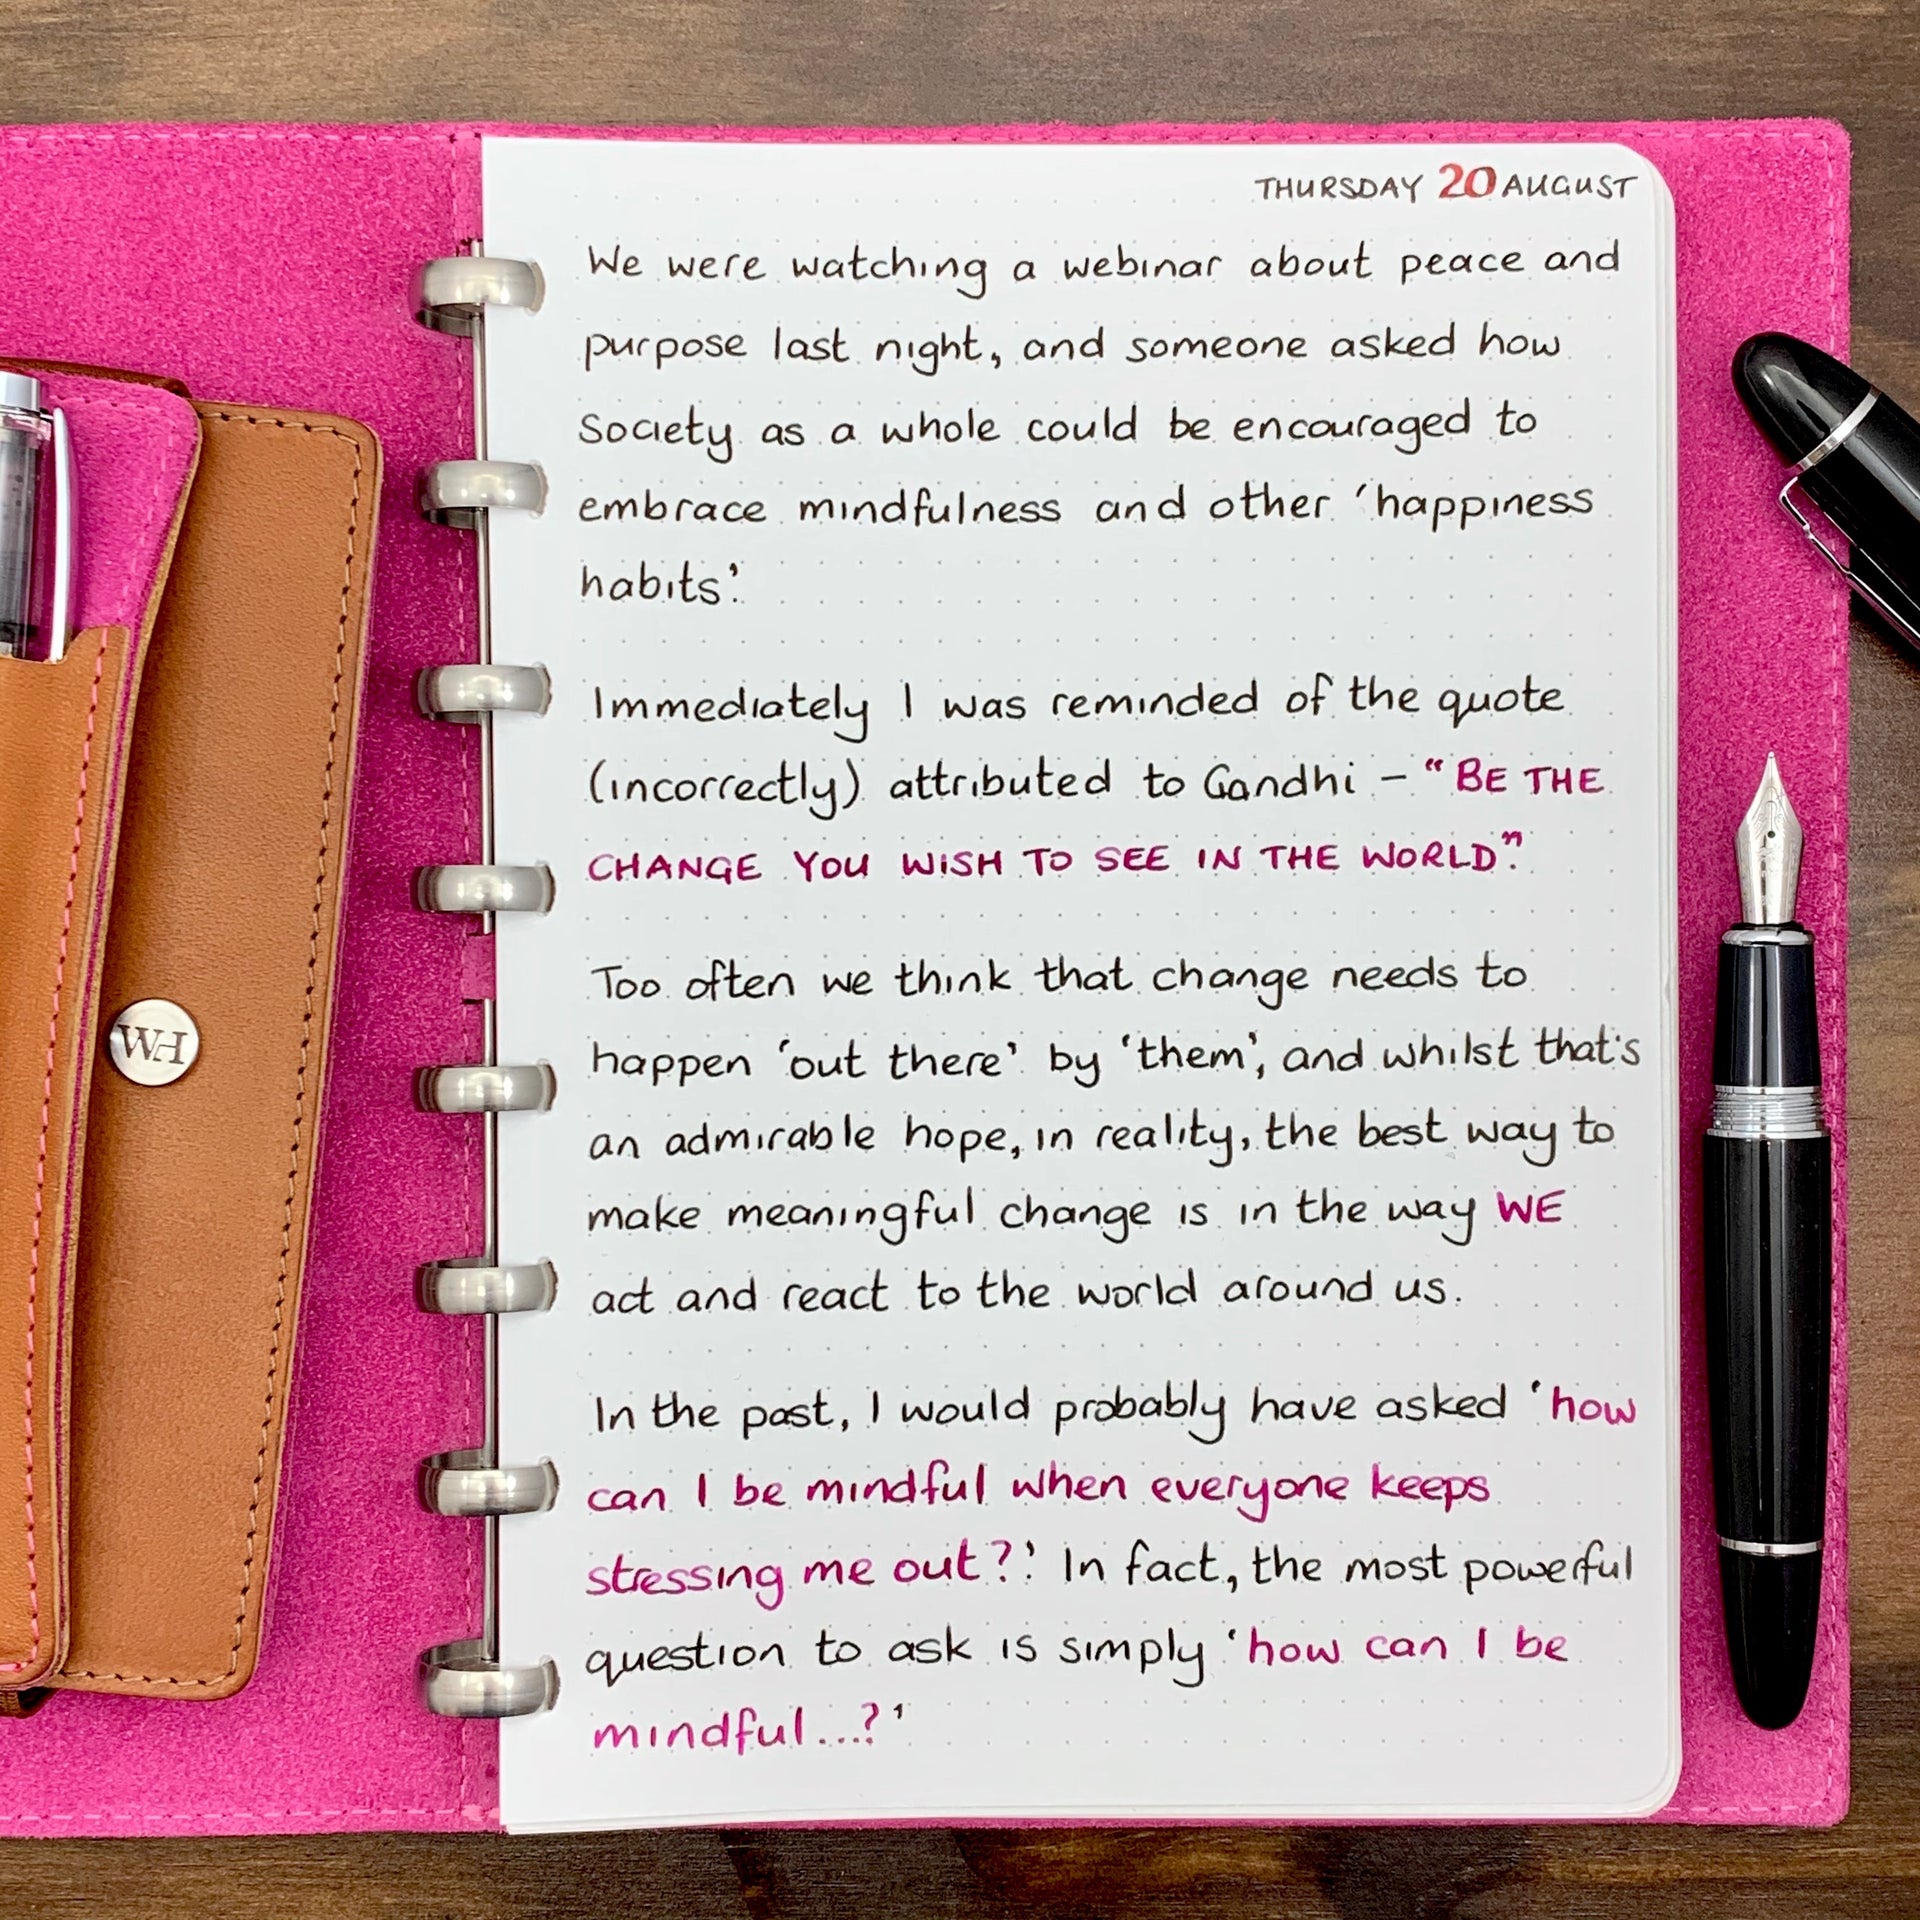 THURSDAY 20 AUGUST
We were watching a webinar about peace and
purpose last night, and someone asked how
society as a whole could be encouraged to
embrace mindfulness and other 'happiness
habits'.
Immediately I was reminded of the quote
(incorrectly) attributed to Gandhi – "BE THE
CHANGE YOU WISH TO SEE IN THE WORLD".
Too often we think that change needs to
happen 'out there' by 'them', and whilst that's
an admirable hope, in reality, the best way to
make meaningful change is in the way WE
act and react to the world around us.
In the past, I would probably have asked 'how
can I be mindful when everyone keeps
stressing me out?'. In fact, the most powerful
question to ask is simply 'how can I be
mindful...?'
WH